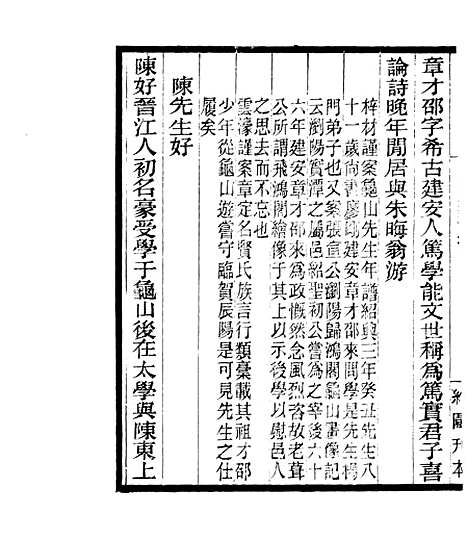 章才邵字希古建安人篤學能文世稱爲篤實君子喜
論詩晚年閒居與朱晦翁游
梓材謹案龜山先生年譜紹興三年癸丑先生八
十一歲尚書廖剛建安章才邵來問學是楊
門弟子也又案張宣公瀏陽歸鴻閣龜山畫像記
云瀏陽實潭之屬邑紹聖初公嘗爲之宰後六十
六年建安章才邵來爲政慨然念風烈咨故老葺
公所謂飛鴻閣繪像于其上以示後學以慰邑人
之思去而不忘也
雲濠謹案章定名賢氏族言行類稾載其祖才邵
少年從龜山遊嘗守臨賀辰陽是可見先生之仕
履矣
陳先生好
陳好晉江人初名豪受學于龜山後在太學與陳東上
約園刊本